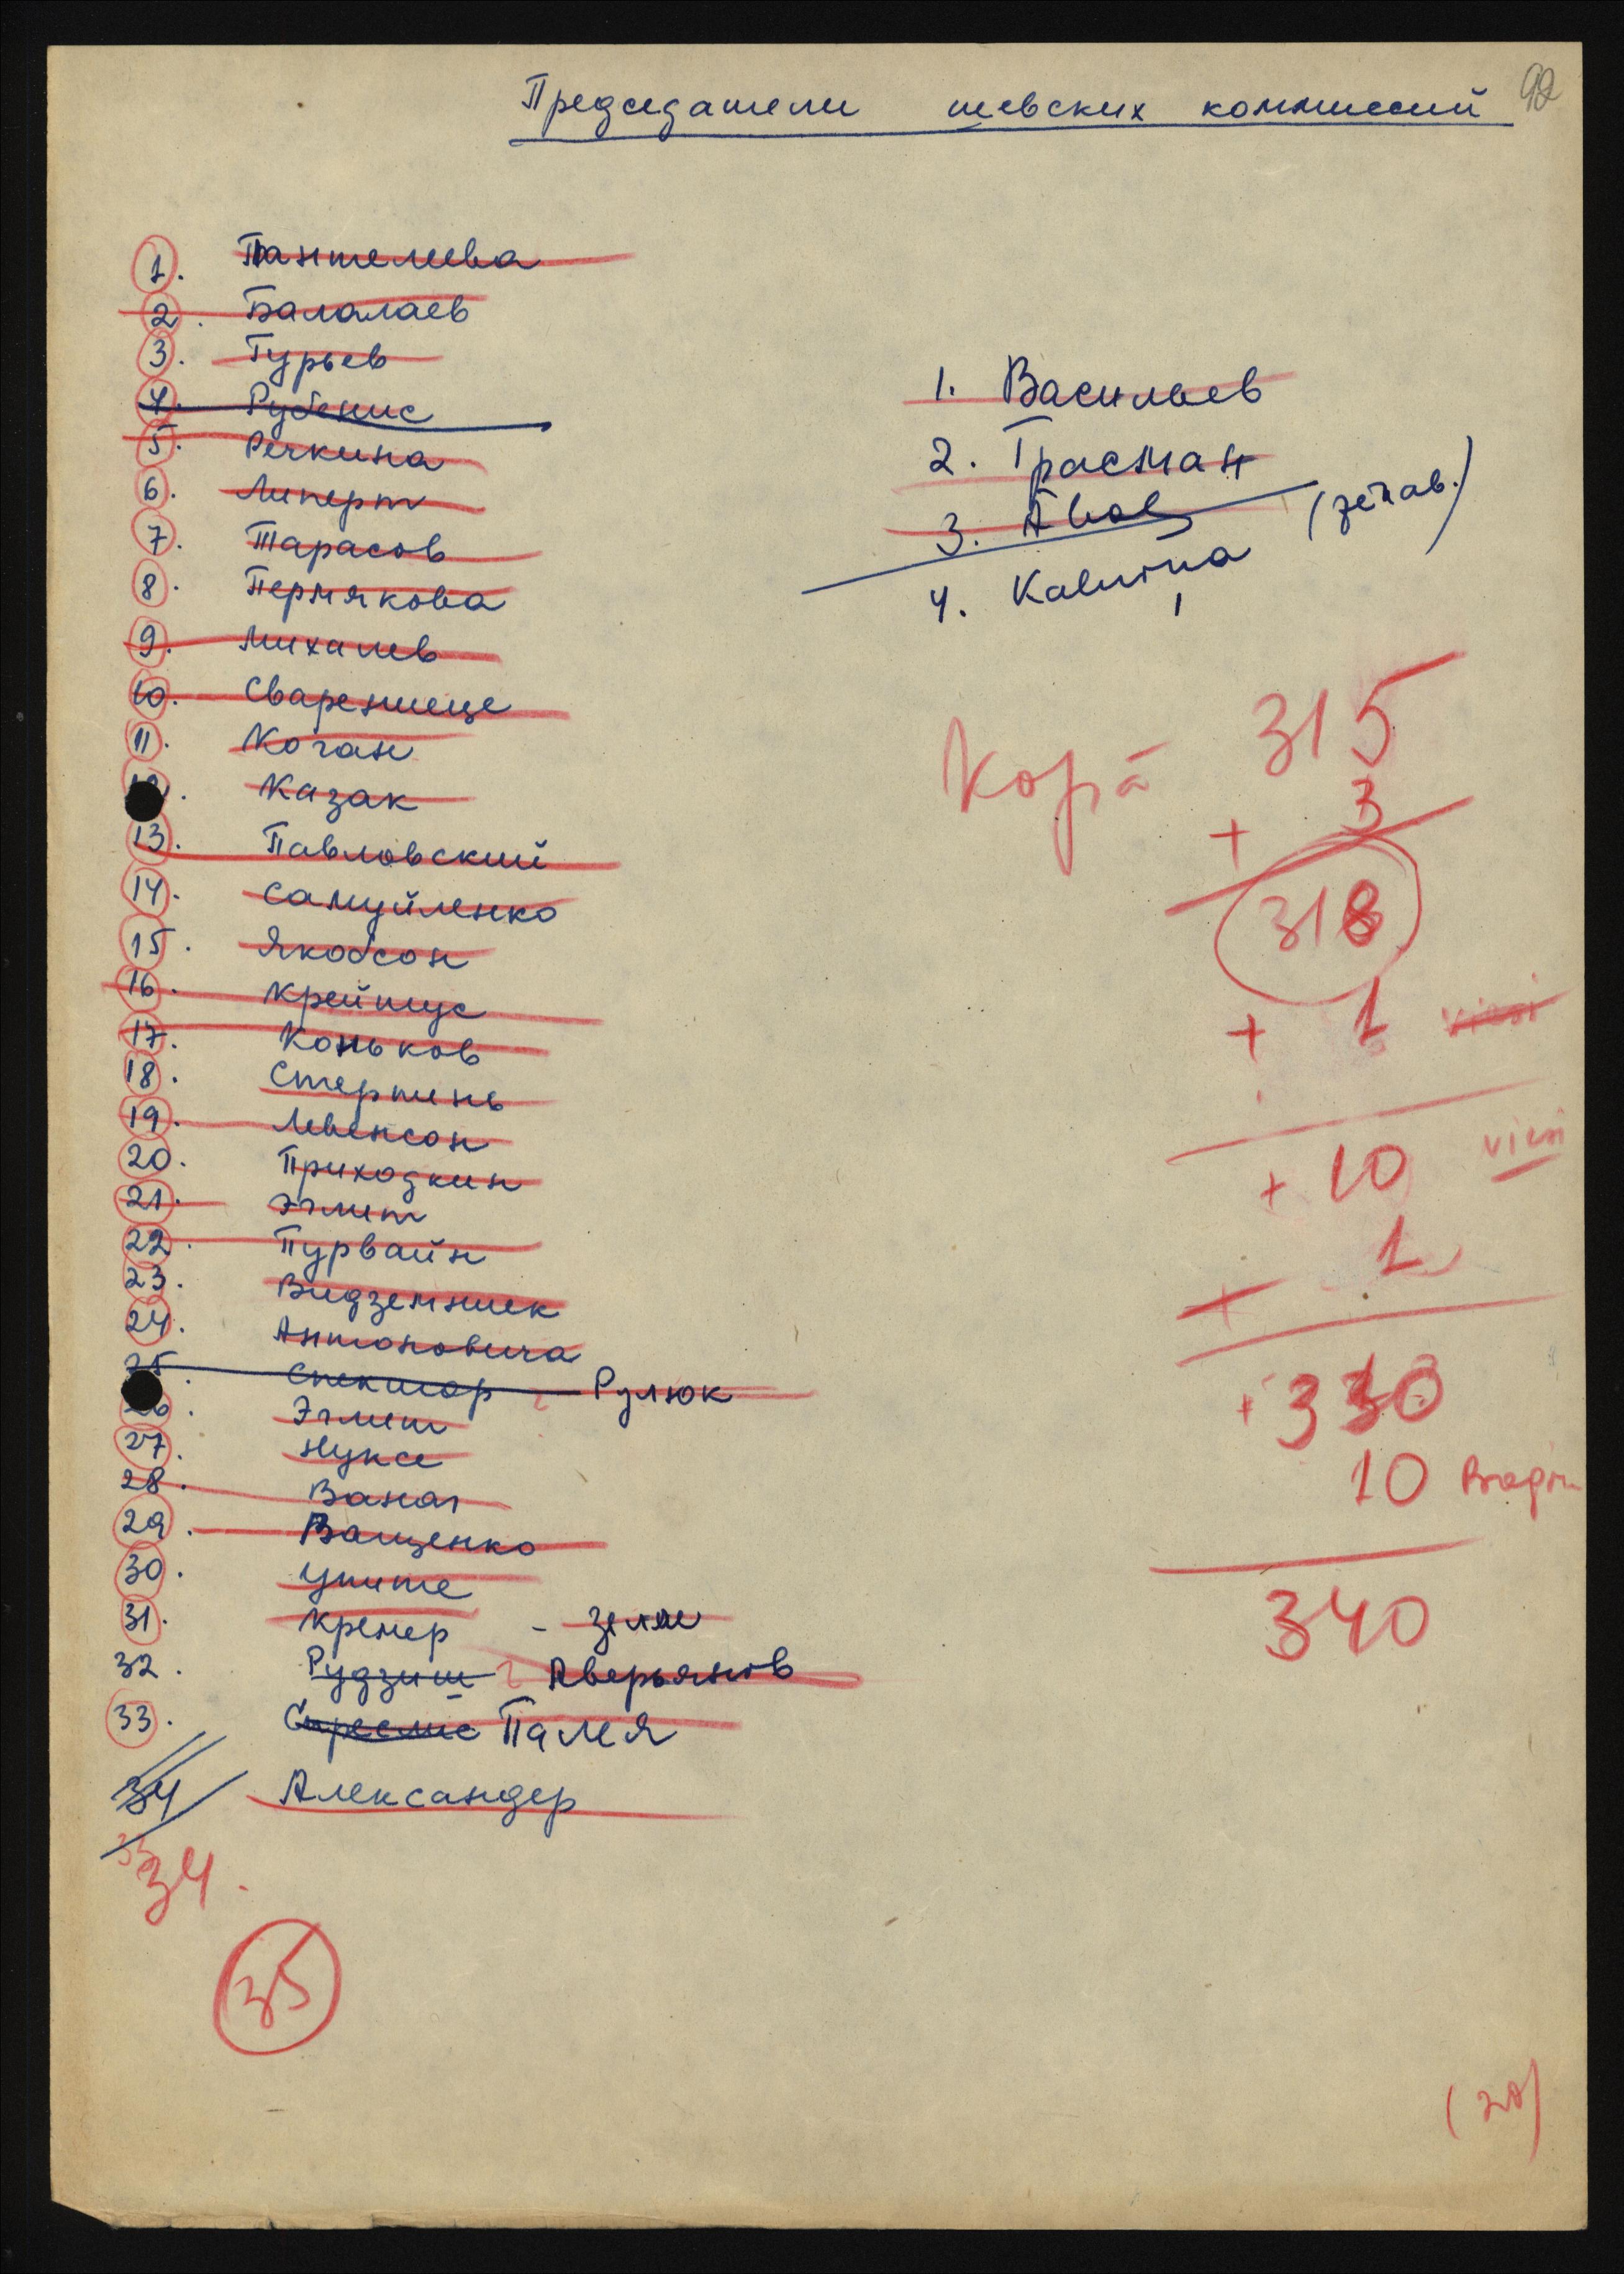 92
Председатели шевских комиссий
1. Пантелеева
2. Балалаев
3. Гурьев
4. Рубенис
5. Речкина
6. Липерт
7. Тарасов
8. Пермякова
9. Михалев
10. Сваренице
11. Коган
12. Казак
13. Павловский
14. Самуйленко
15. Якобсон
16. Крейтус
17. Коньков
18. Стерпинь
19. Левенсон
20. Приходкин
21. Эглит
22. Пурвайн
23. Видземниек
24. Антоновича
25. Спектор Рулюк
26. Эглит
27. Нуксе
28. Ванаг
29. Ващенко
30. Упите
31. Кремер -
32. Рудзит Аверьянов
33. Палея
34 Александер
34.
35
1. Васильев
2. Грасман
3. Abol
4. Kalniņa
Kopā 315
+ 3
318
+ 1 viesi
+ 10 viesi
1
+
+ 330
10
340
(20)